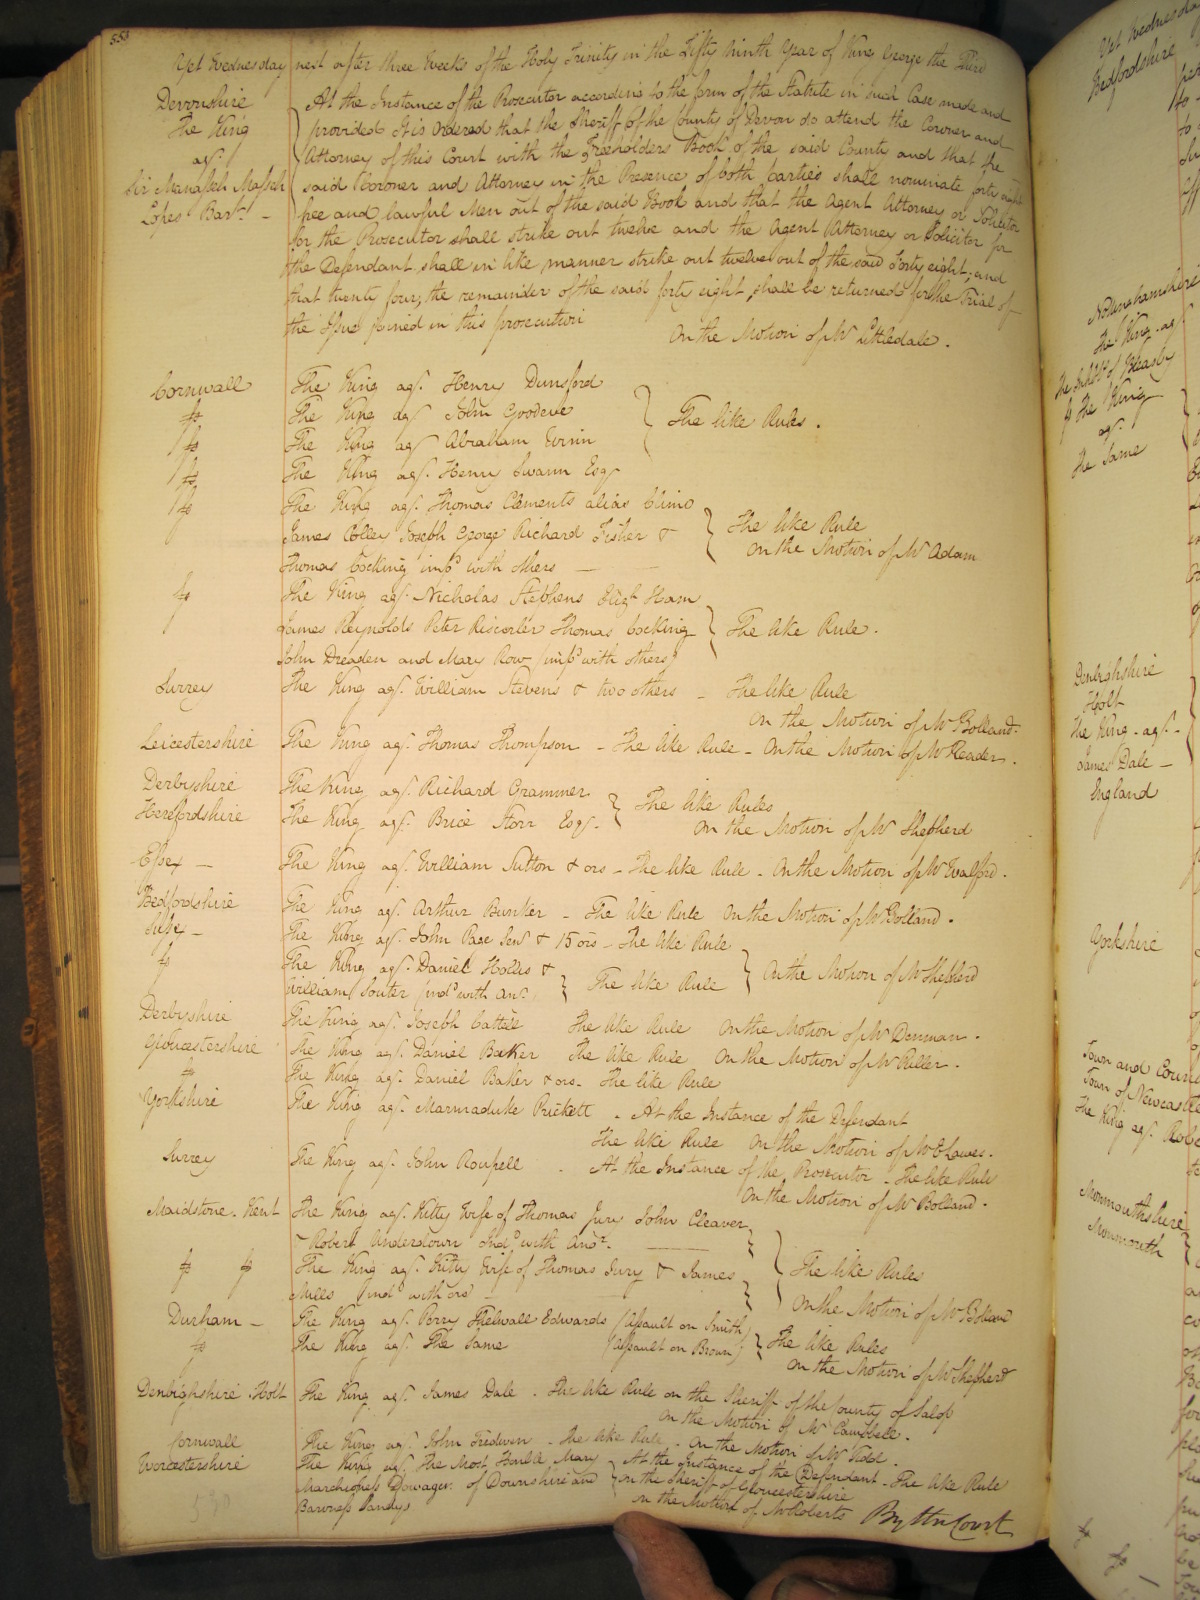 551
Yet Wednesday next after three Weeks of the Holy Trinity in the Fifty Ninth Year of King George the Third
Devonshire
The King
agt.
Sir Manasseh Masseh
Lopes Bart. -
At the Instance of the Prosecutor according to the form of the Statute in such Case made and
provided It is Ordered that the Sheriff of the County of Devon do attend the Coroner and
Attorney of this Court with the Freeholders Book of the said County and that the
said Coroner and Attorney in the Presence of both parties shall nominate forty eight
free and lawful Men out of the said Book and that the Agent Attorney or Solicitor
for the Prosecutor shall strike out twelve and the Agent Attorney or Solicitor for
the Defendant shall in like manner strike out twelve out of the said Forty eight; and
that twenty four, the remainder of the said forty eight, shall be returned for the Trial of
the Issue joined in this prosecution
On the Motion of Mr Littledale.
Cornwall The King agt. Henry Dunsford
The King agt John Goodeve
The King agt Abraham
The King agt. Henry Swann Esqr
The like Rules.
The King agt. Thomas Clements alias Climo
James Joseph George Richard Fisher &
Thomas Cocking impd with others
The like Rule
On the Motion of Mr Adam
The King agt. Nicholas Stephens Ham
James Reynolds Peter Thomas Cocking
John and Mary Row (impd with others)
The like Rule.
Surrey The King agt. William Stevens & two others - The like Rule
On the Motion of Mr Bolland.
Leicestershire The King agt. Thomas Thompson - The like Rule - On the Motion of Mr Reader.
Derbyshire The King agt. Richard Crammer
Herefordshire The King agt. Brice Storr Esqr.
The like Rules
On the Motion of Mr Shepherd
Essex - The King agt. William Sutton & ors - The like Rule - On the Motion of Mr Walford.
Bedfordshire The King agt. Arthur Bunker - The like Rule On the Motion of Mr Bolland.
The King agt. John Page Senr & 15 ors - The like Rule
The King agt. Daniel Hollis &
William Souter (indd with anr.
The like Rule
On the Motion of Mr Shepherd
Derbyshire The King agt. Joseph Cattle The like Rule On the Motion of Mr Denman.
Gloucestershire The King agt. Daniel Baker The like Rule On the Motion of Mr
The King agt. Daniel Baker & ors. The like Rule
Yorkshire The King agt. Marmaduke Prickett - At the Instance of the Defendant
The like Rule On the Motion of Mr E Lawes.
Surrey The King agt. John Roupell - At the Instance of the Prosecutor - The like Rule
On the Motion of Mr Bolland.
Maidstone. Kent The King agt. Kitty Wife of Thomas Jury John Cleaver
Robert Underdown Indd with anor.
The King agt. Kitty Wife of Thomas Jury & James
Mills Indd with ors
The like Rules
On the Motion of Mr Bolland
Durham - The King agt. Perry Thelwall Edwards (Assault on Smith)
The King agt. The Same (Assault on Brown)
The like Rules
On the Motion of Mr Shepherd
Denbighshire. Holt The King agt. James Dale - The like Rule on the Sheriff of the County of Salop
On the Motion of Mr Campbell.
Cornwall The King agt. John Tredwen - The like Rule - On the Motion of Mr Tidd.
Worcestershire The King agt. The Most Honble Mary
Marchioness Dowager of Downshire and
Baroness Sandys
At the Instance of the Defendant - The like Rule
on the Sheriff of Gloucestershire
on the Motion of Mr Roberts
By the Court
530
Yet Wednesday
Bedfordshire
Nottinghamshire
The King agt
The Inhabts of Bleasby
The King
agt.
The Same
Denbighshire
Holt
The King - agt. -
James Dale -
England
Yorkshire
Town and
Town of Newcastle
The King agt.
Monmouthshire
Monmouth